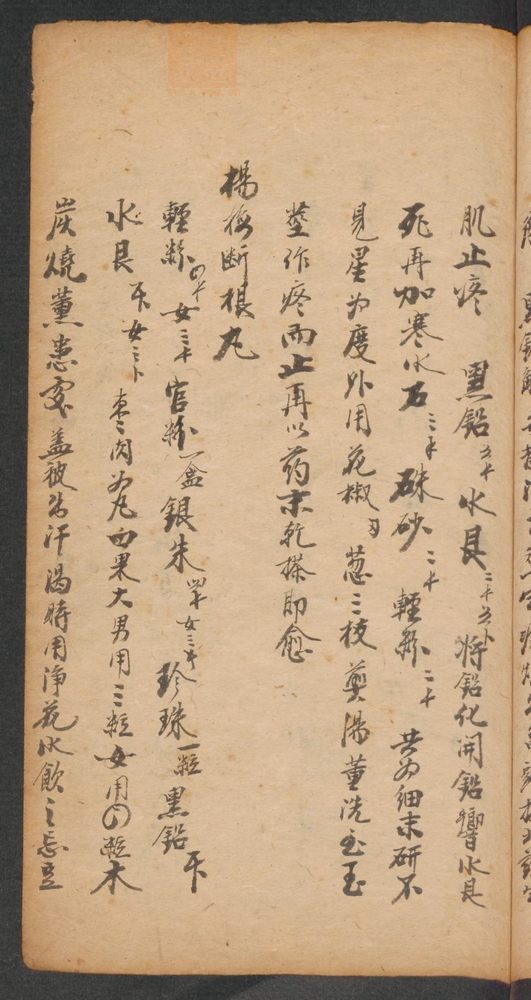 肌止疼　黑鉛五十水艮二十五卜将鉛化開鉛響水艮
死再加寒水石三十硃砂二十輕粉二十共为細末研不
見星为度外用花椒葱三枝煎湯薰洗至玉
莖作疼而止再以药末乾搽即愈
楊梅断根丸
輕粉四十女三十官粉一盒銀朱四十女三十珍珠一粒黑鉛下
水艮下女三卜枣肉为丸白果大男用三粒女用四粒木
炭燒薰患處盖被出汗渴時用净花水飲之忌豆